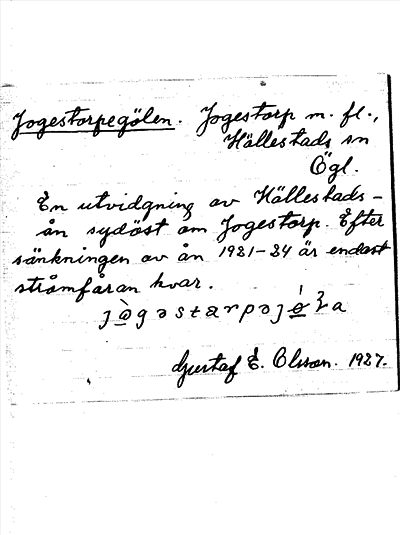 Jogestorpegölen. Jogestorp m. fl.,
Hällestads sn
Ögl.
En utvidgning av Hällestads-
ån sydöst om Jogestorp. Efter
sänkningen av ån 1921-24 är endast
strömfåran kvar.
Gustaf E. Olsson. 1927.